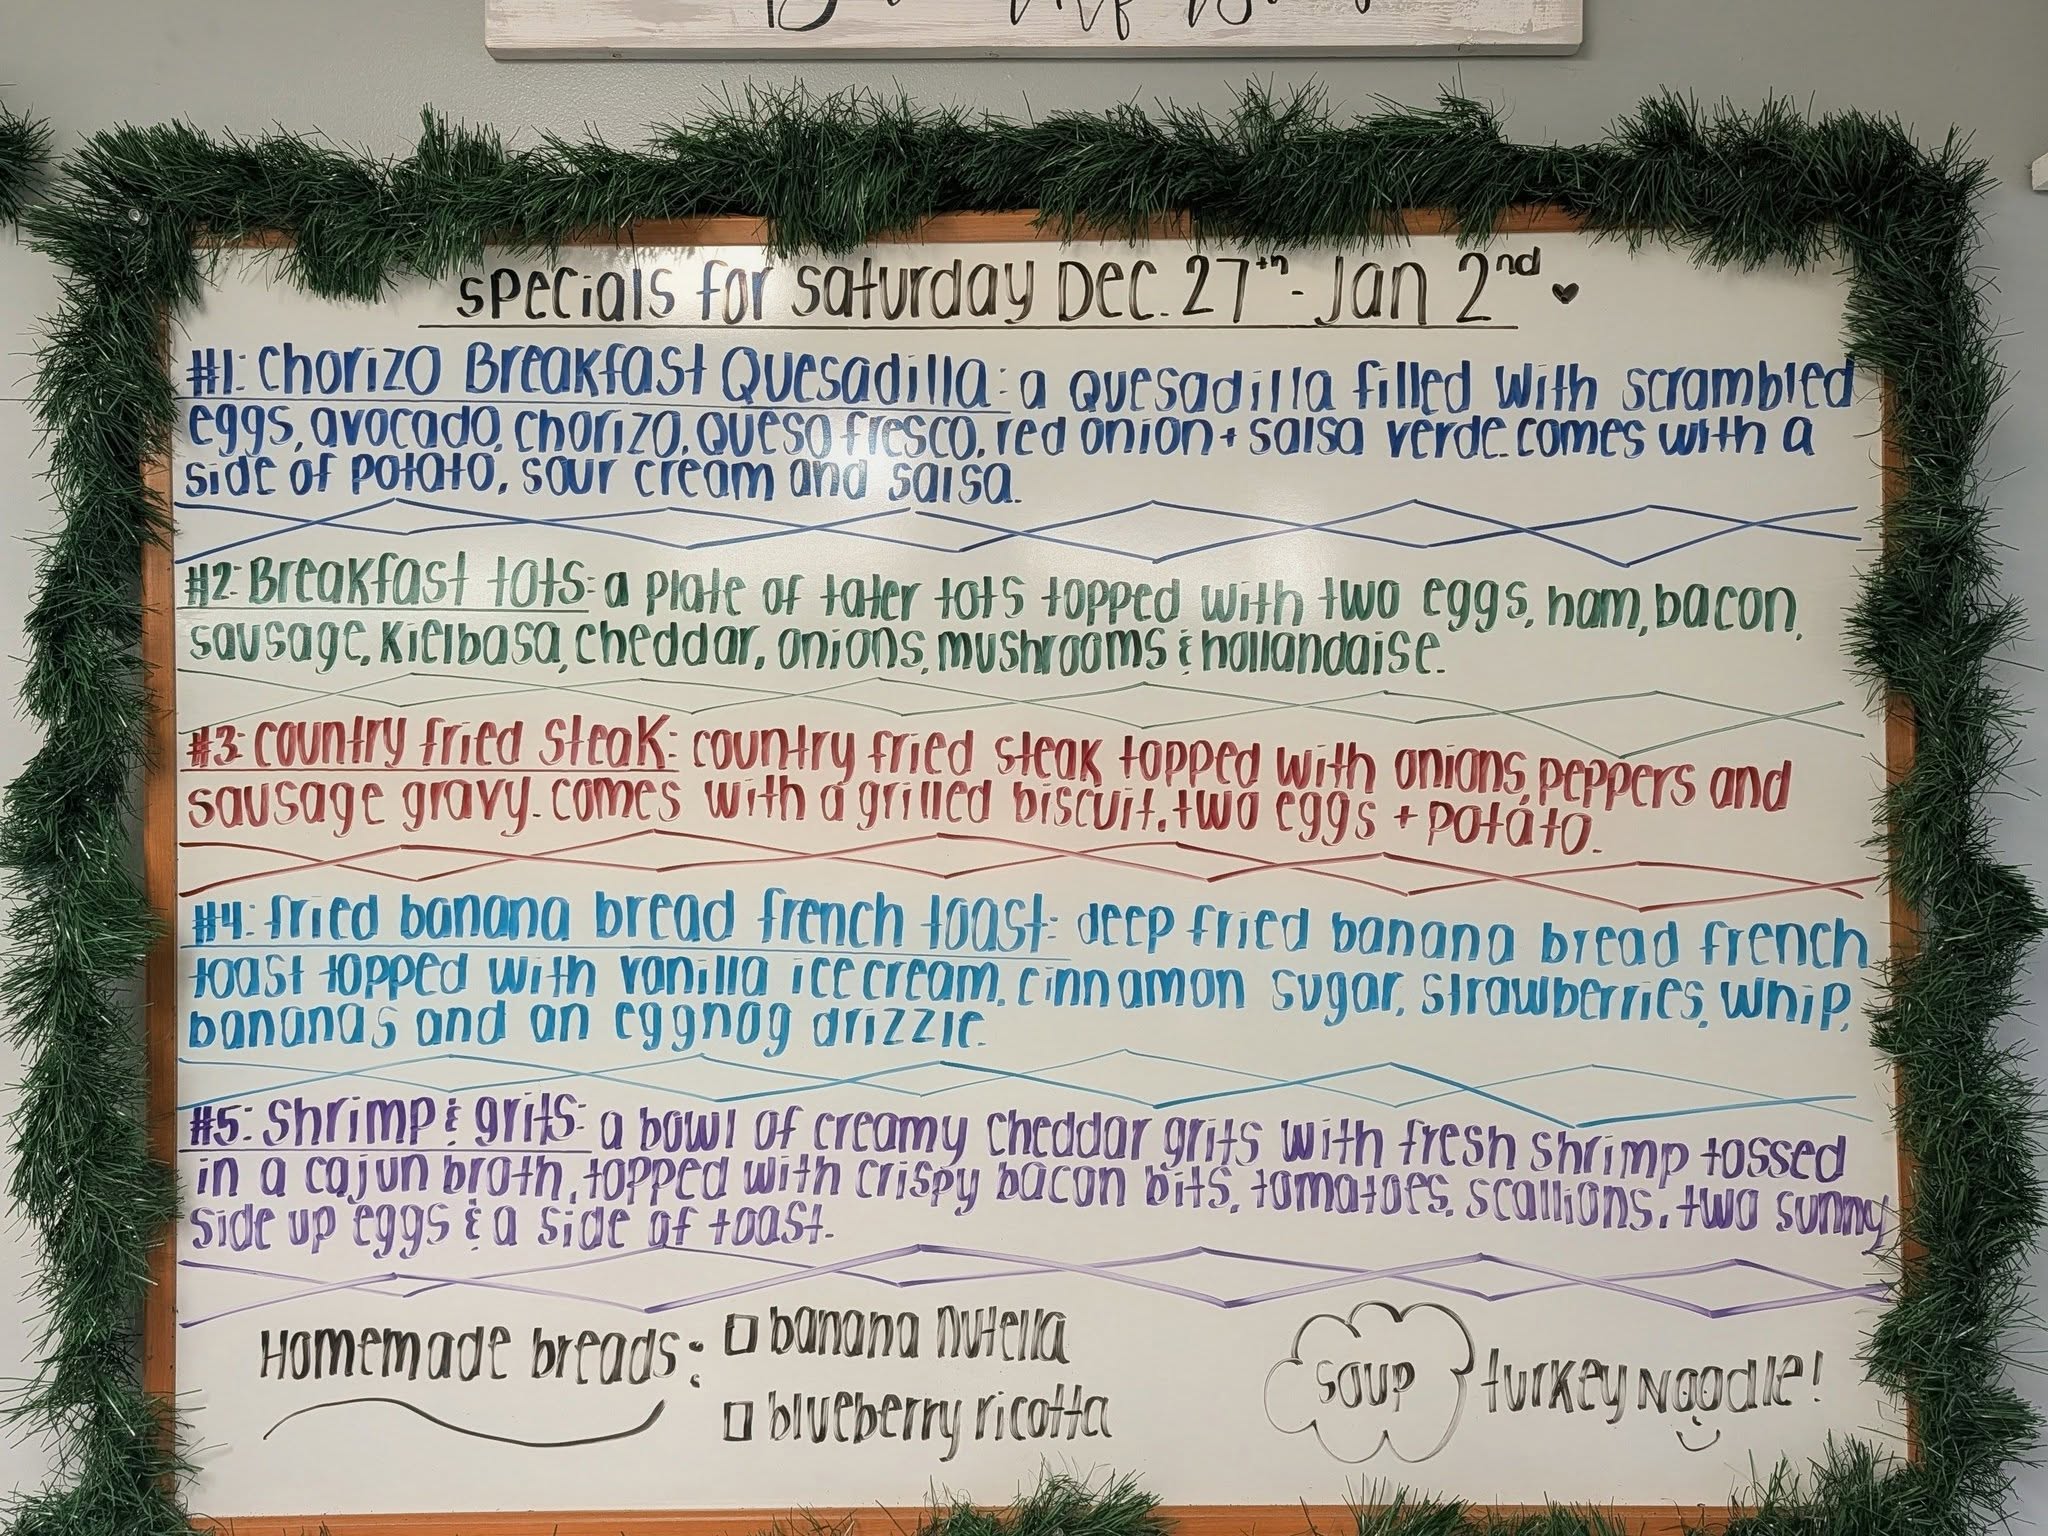 Specials for Saturday Dec. 27th - Jan 2nd ♥
#1: Chorizo Breakfast Quesadilla: a quesadilla filled with scrambled
eggs, avocado, chorizo, queso fresco, red onion + salsa verde. comes with a
side of potato, sour cream and salsa.
#2: Breakfast tots: a plate of tater tots topped with two eggs, ham, bacon,
sausage, kielbasa, cheddar, onions, mushrooms & hollandaise.
#3: Country fried steak: country fried steak topped with onions, peppers and
sausage gravy. comes with a grilled biscuit, two eggs + potato.
#4: fried banana bread french toast: deep fried banana bread french
toast topped with vanilla ice cream, cinnamon sugar, strawberries, whip,
bananas and an eggnog drizzle.
#5: Shrimp & grits: a bowl of creamy cheddar grits with fresh shrimp tossed
in a cajun broth, topped with crispy bacon bits, tomatoes, scallions, two sunny
side up eggs & a side of toast.
Homemade breads: □ banana nutella
□ blueberry ricotta
Soup turkey noodle!